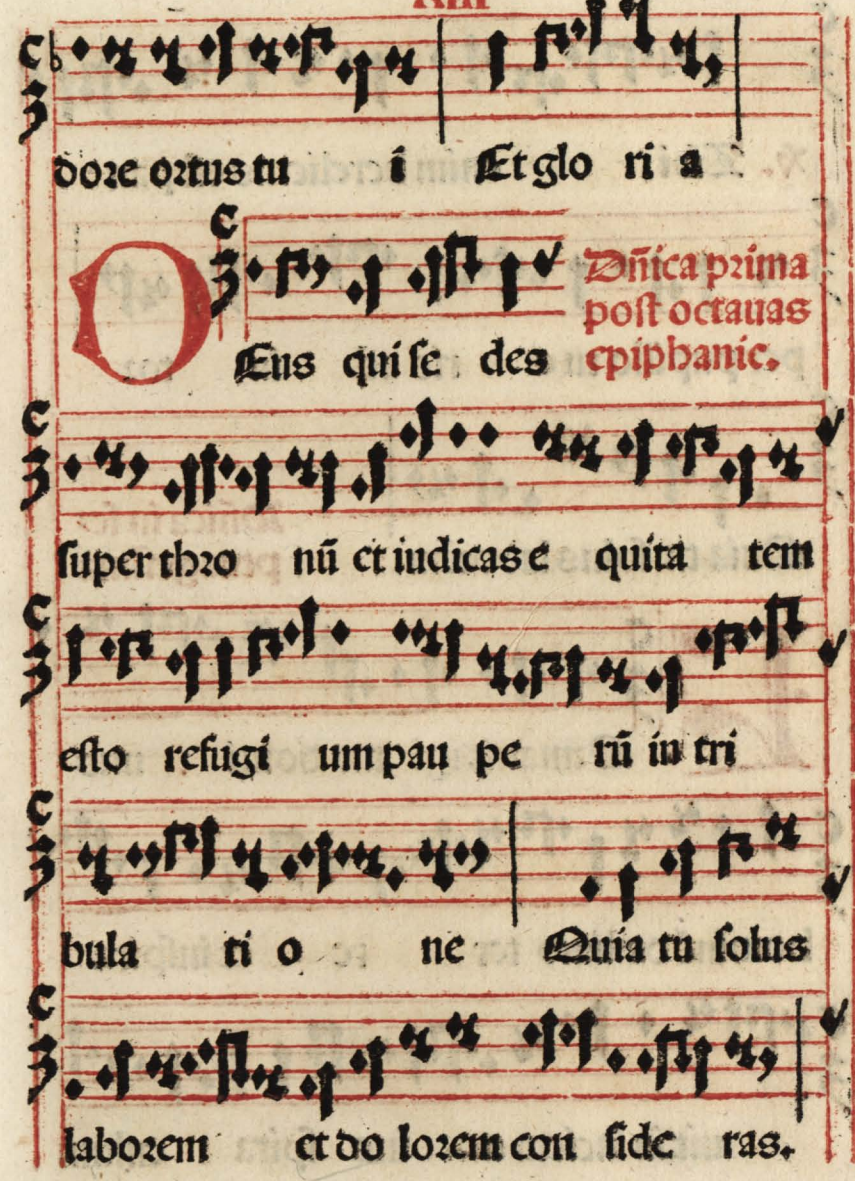 dore ortus tu i Et glo ri a
Dñica prima
post octauas
epiphanie.
DEus qui se des
super thro nũ et iudicas e quita tem
esto refugi um pau pe rũ in tri
bula ti o ne Quia tu solus
laborem et do lorem con side ras.